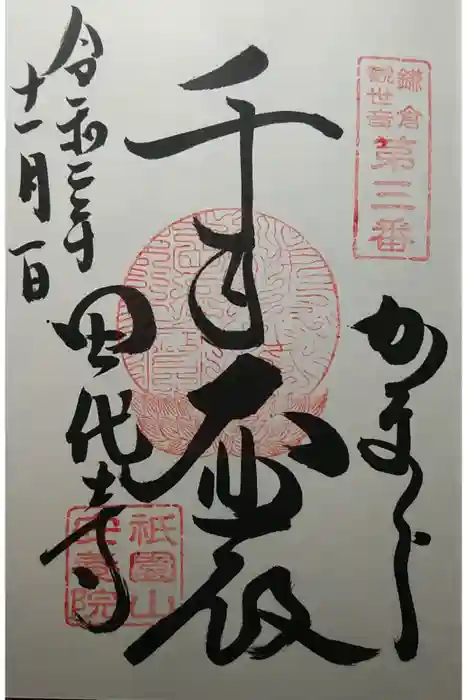 鎌倉
観世音
第三番
かまくら
千手
田代寺
令和二年
十一月一日
祇園山
安養院